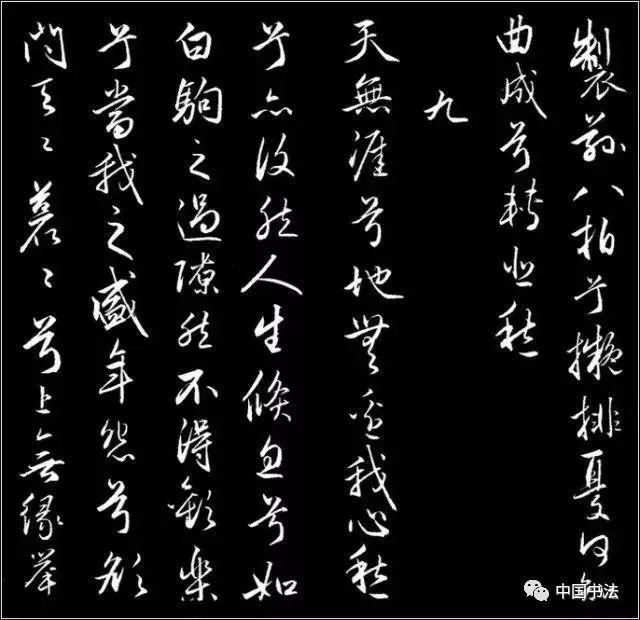 製茲八拍兮擬排憂何知
曲成兮轉悲愁
九
天無涯兮地無邊我心愁
兮亦復然人生倏忽兮如
白駒之過隙然不得歡樂
兮當我之盛年怨兮欲
問天〻蒼〻兮上無緣舉
中国书法